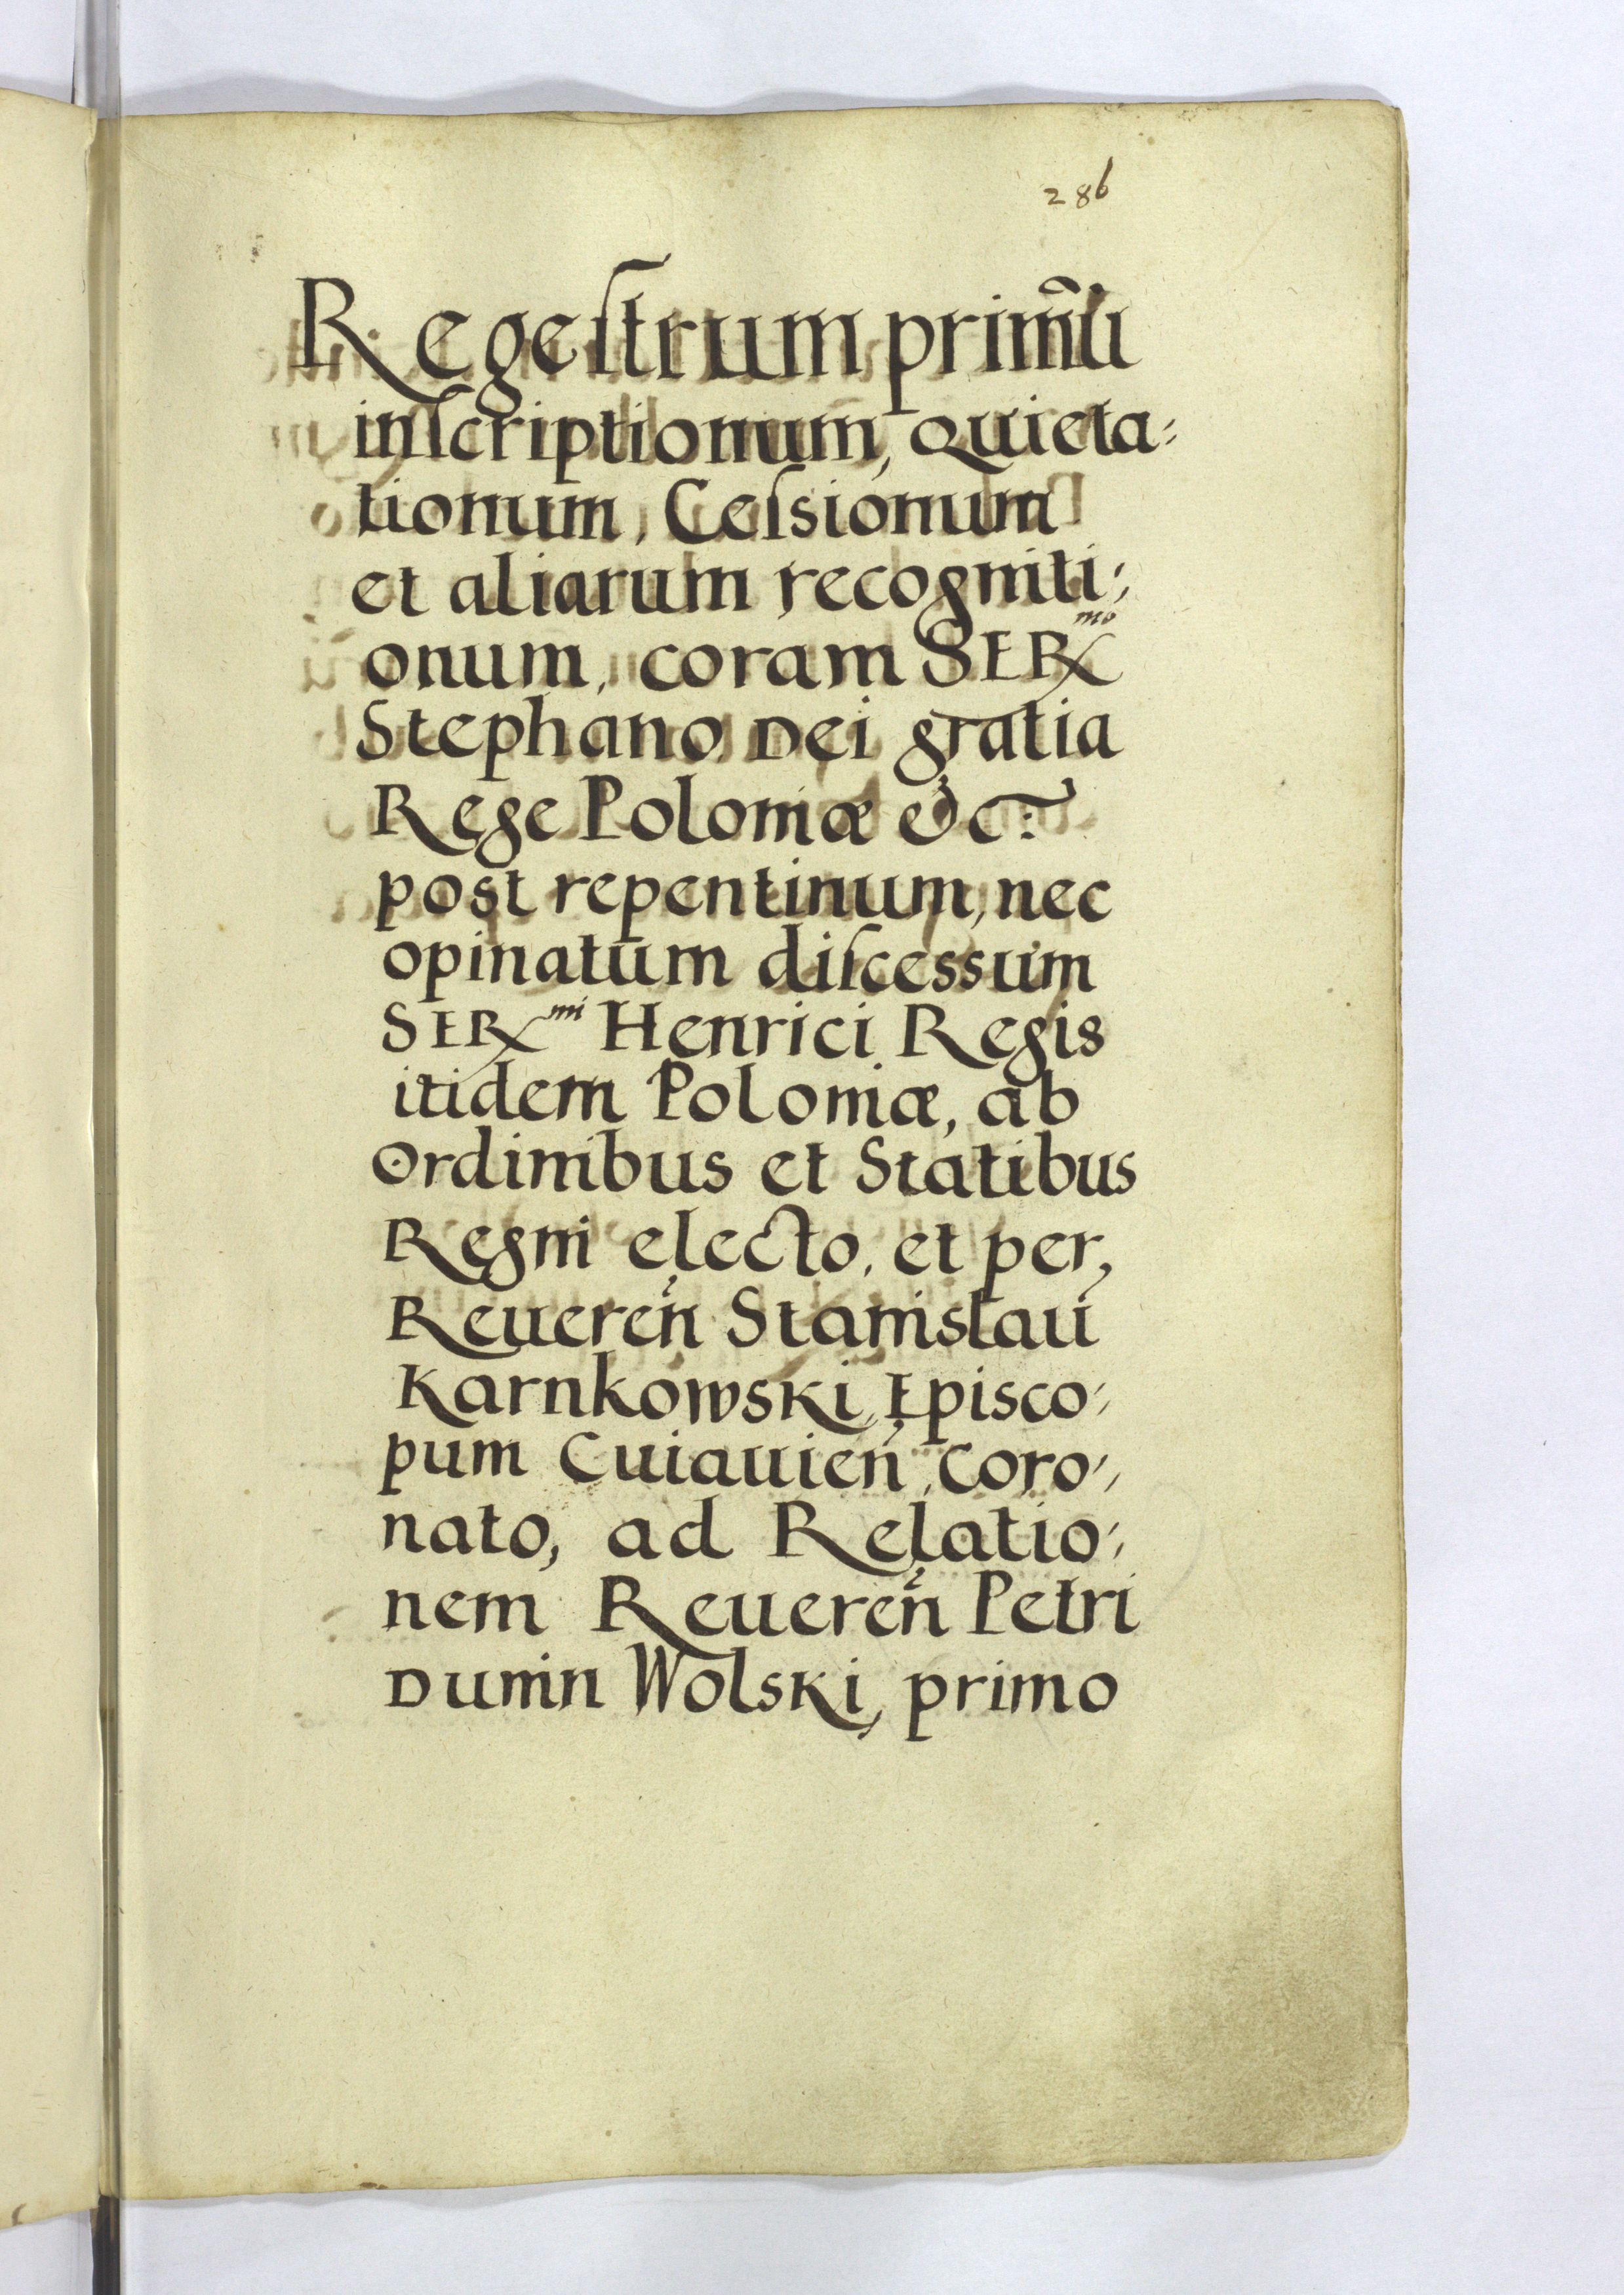 286
Regeſtrum primũ
inſcriptionum, Quieta=
tionum, Ceſsionum
et aliarum recogniti=
onum, coram SERmo
Stephano Dei gratia
Rege Poloniæ &c:
post repentinum, nec
opinatum diſcessum
SERmi Henrici Regis
itidem Poloniæ, ab
Ordinibus et Statibus
Regni electo, et per,
Reueren̄ Stanislaū
Karnkowski, Episco=
pum Cuiauien̄, coro=
nato, ad Relatio=
nem Reueren̄ Petri
Dunin Wolski, primo